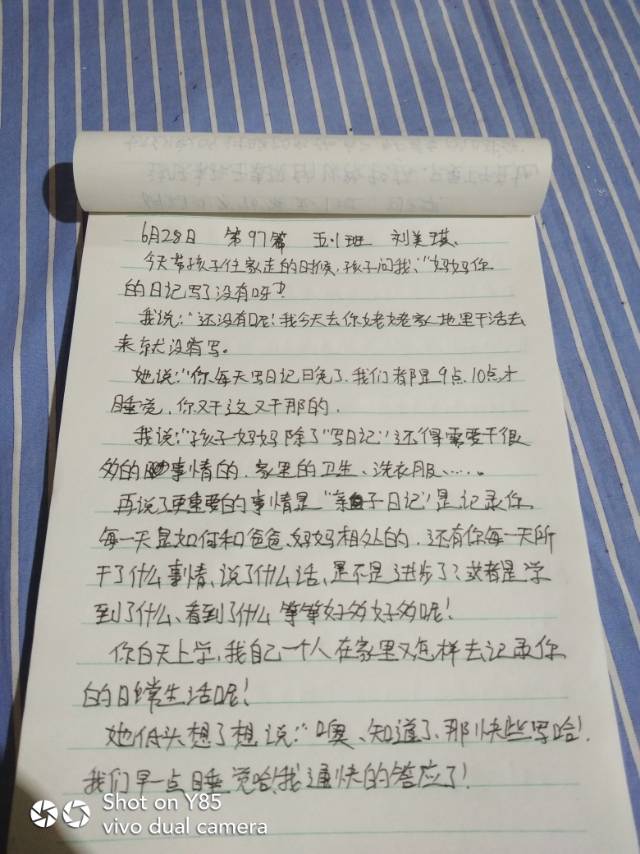 6月28日 第97篇 五1班 刘美琪、
今天带孩子往家走的时候，孩子问我、“妈妈你
的日记写了没有呀？
我说：“还没有呢！我今天去你姥姥家地里干活去
来就没有写。
她说：“你每天写日记晚了、我们都是9点、10点才
睡觉，你又干这又干那的、
我说：“孩子妈妈除了“写日记”还得需要干很
多的事情的、家里的卫生、洗衣服……。
再说了更重要的事情是“亲子日记”是记录你
每一天是如何和爸爸、妈妈相处的、还有你每一天所
干了什么事情、说了什么话、是不是进步了？或者是学
到了什么、看到了什么等等好多好多呢！
你白天上学，我自己一个人在家里又怎样去记录你
的日常生活呢！
她低头想了想说：“噢、知道了、那快些写哈！
我们早一点睡觉哈！我通快的答应了！
Shot on Y85
vivo dual camera